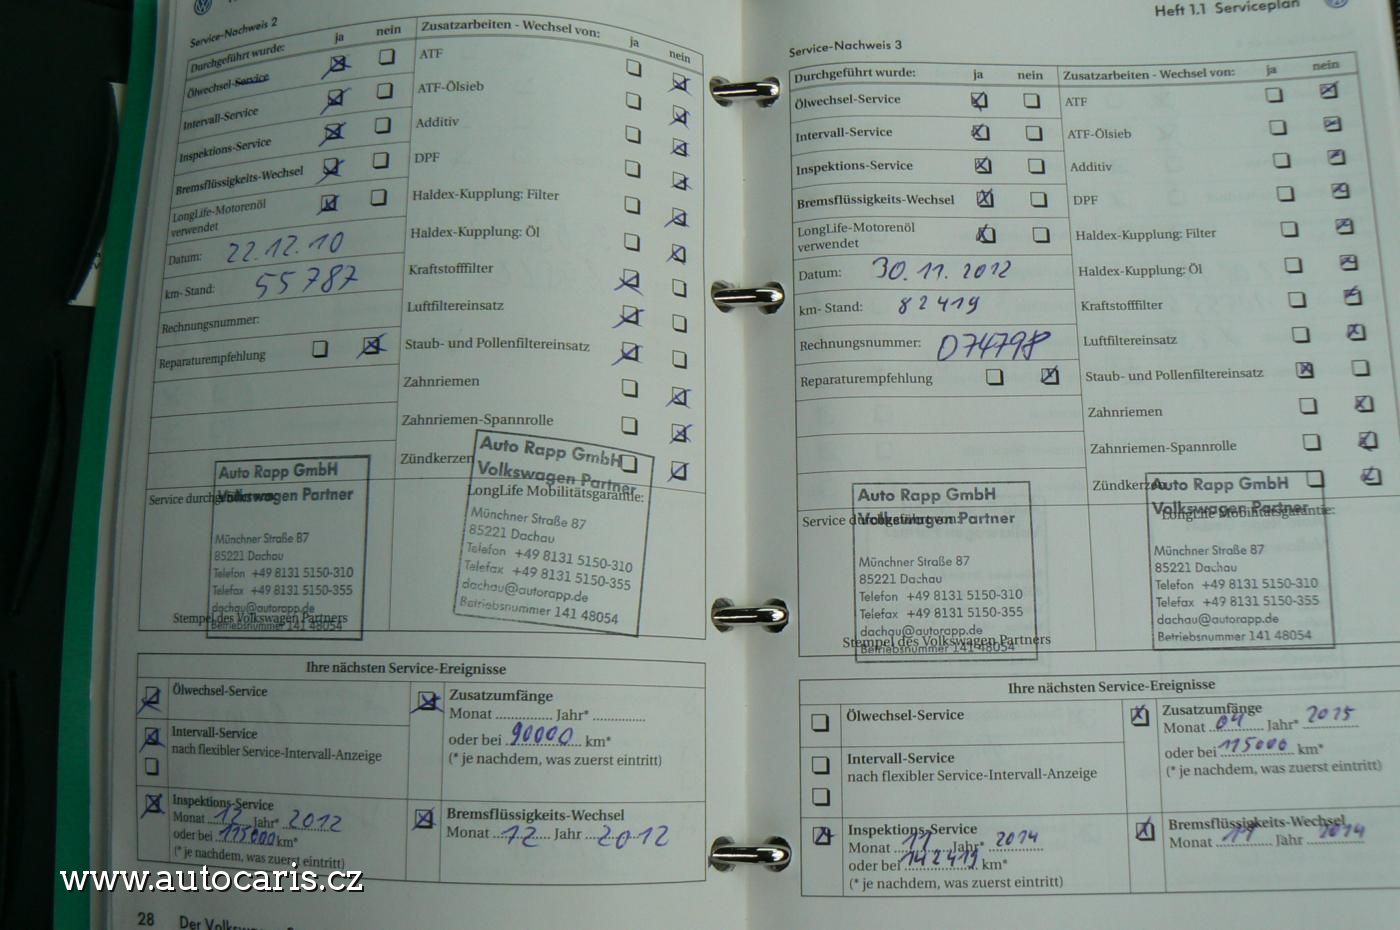 Service-Nachweis 2
Durchgeführt wurde: ja nein
Ölwechsel-Service
Intervall-Service
Inspektions-Service
Bremsflüssigkeits-Wechsel
LongLife-Motorenöl
verwendet
Datum: 22.12.10
km- Stand: 55 787
Rechnungsnummer:
Reparaturempfehlung
Zusatzarbeiten - Wechsel von: ja nein
ATF
ATF-Ölsieb
Additiv
DPF
Haldex-Kupplung: Filter
Haldex-Kupplung: Öl
Kraftstofffilter
Luftfiltereinsatz
Staub- und Pollenfiltereinsatz
Zahnriemen
Zahnriemen-Spannrolle
Zündkerzen
Auto Rapp GmbH
Volkswagen Partner
Münchner Straße 87
85221 Dachau
Telefon +49 8131 5150-310
Telefax +49 8131 5150-355
dachau@autorapp.de
Betriebsnummer 141 48054
Stempel des Volkswagen Partners
Auto Rapp GmbH
Volkswagen Partner
LongLife Mobilitätsgarantie:
Münchner Straße 87
85221 Dachau
Telefon +49 8131 5150-310
Telefax +49 8131 5150-355
dachau@autorapp.de
Betriebsnummer 141 48054
Ihre nächsten Service-Ereignisse
Ölwechsel-Service
Intervall-Service
nach flexibler Service-Intervall-Anzeige
Inspektions-Service
Monat 12 Jahr* 2012
oder bei 115000 km*
(* je nachdem, was zuerst eintritt)
Zusatzumfänge
Monat ............... Jahr* ...............
oder bei 90000 km*
(* je nachdem, was zuerst eintritt)
Bremsflüssigkeits-Wechsel
Monat 12 Jahr 2012
28
Heft 1.1 Serviceplan
Service-Nachweis 3
Durchgeführt wurde: ja nein
Ölwechsel-Service
Intervall-Service
Inspektions-Service
Bremsflüssigkeits-Wechsel
LongLife-Motorenöl
verwendet
Datum: 30.11.2012
km- Stand: 82419
Rechnungsnummer: 074798
Reparaturempfehlung
Zusatzarbeiten - Wechsel von: ja nein
ATF
ATF-Ölsieb
Additiv
DPF
Haldex-Kupplung: Filter
Haldex-Kupplung: Öl
Kraftstofffilter
Luftfiltereinsatz
Staub- und Pollenfiltereinsatz
Zahnriemen
Zahnriemen-Spannrolle
Zündkerzen
Auto Rapp GmbH
Volkswagen Partner
Münchner Straße 87
85221 Dachau
Telefon +49 8131 5150-310
Telefax +49 8131 5150-355
dachau@autorapp.de
Stempel des Volkswagen Partners
Betriebsnummer 141 48054
Auto Rapp GmbH
Volkswagen Partner
LongLife Mobilitätsgarantie:
Münchner Straße 87
85221 Dachau
Telefon +49 8131 5150-310
Telefax +49 8131 5150-355
dachau@autorapp.de
Betriebsnummer 141 48054
Ihre nächsten Service-Ereignisse
Ölwechsel-Service
Intervall-Service
nach flexibler Service-Intervall-Anzeige
Inspektions-Service
Monat 11 Jahr* 2014
oder bei 142419 km*
(* je nachdem, was zuerst eintritt)
Zusatzumfänge
Monat 04 Jahr* 2015
oder bei 115000 km*
(* je nachdem, was zuerst eintritt)
Bremsflüssigkeits-Wechsel
Monat 11 Jahr 2014
www.autocaris.cz